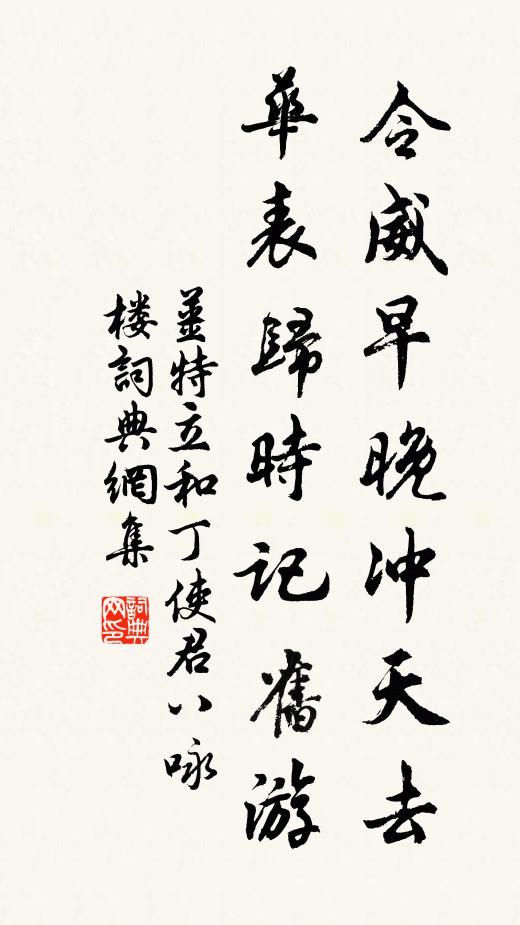 令威早晚沖天去
華表歸時記舊游
薑特立和丁使君八咏
楼詞典網集
詞典网印